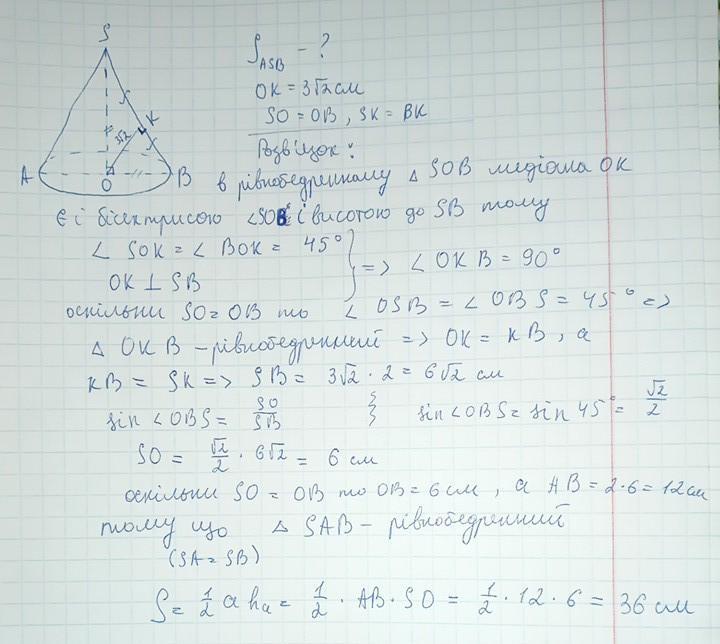 S
K
3√2
A
O
B
S_ASB - ?
OK = 3√2 см
SO = OB, SK = BK
Розв'язок:
в рівнобедренному △ SOB медіана OK
є і бісектрисою ∠SOB і висотою до SB тому
∠ SOK = ∠ BOK = 45°
OK ⊥ SB
=> ∠ OKB = 90°
оскільки SO = OB то ∠ OSB = ∠ OBS = 45° =>
△ OKB - рівнобедренний => OK = KB, а
KB = SK => SB = 3√2 · 2 = 6√2 см
sin ∠OBS = SO/SB } sin∠OBS = sin 45° = √2/2
SO = √2/2 · 6√2 = 6 см
оскільки SO = OB то OB = 6 см, а AB = 2·6 = 12 см
тому що △ SAB - рівнобедренний
(SA = SB)
S = 1/2 a hₐ = 1/2 · AB · SO = 1/2 · 12 · 6 = 36 см